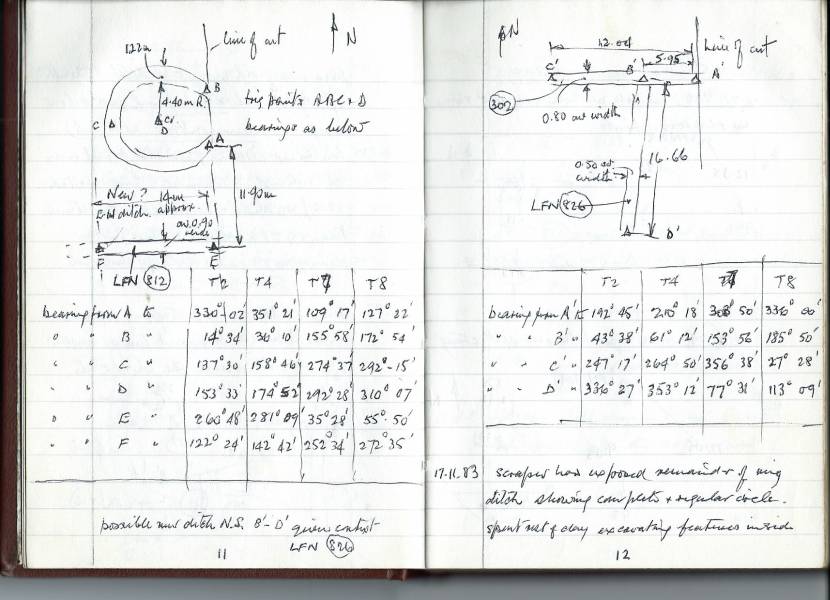 122m
Line of cut
N
B
4.40m R.
C
Cr.
D
A
trig points ABC & D
bearings as below
11.90m
New?
E-W ditch.
14m
approx.
av. 0.90
wide
F
E
LFN 812
T2 T4 T7 T8
bearing from A to 330° 02' 351° 21' 109° 17' 127° 22'
" " B " 14° 34' 36° 10' 155° 58' 172° 54'
" " C " 137° 30' 158° 46' 274° 37' 292° - 15'
" " D " 153° 33' 174° 52' 292° 28' 310° 07'
" " E " 260° 48' 281° 09' 35° 28' 55° 50'
" " F " 122° 24' 142° 42' 252° 34' 272° 35'
possible new ditch N.S. B'- D' given context
LFN 826
11
N
12.04
Line of cut
C'
B'
5.95
A'
302
0.80 cut width
0.50 cut
width
16.66
LFN 826
D'
T2 T4 T7 T8
bearing from A' to 192° 45' 210° 18' 308° 50' 336° 00'
" " B' " 43° 38' 61° 12' 153° 56' 185° 50'
" " C' " 247° 17' 264° 50' 356° 38' 27° 28'
" " D' " 336° 27' 353° 12' 77° 31' 113° 09'
17.11.83 scraper has exposed remainder of ring
ditch showing complete & regular circle.
Spent rest of day excavating features inside
12